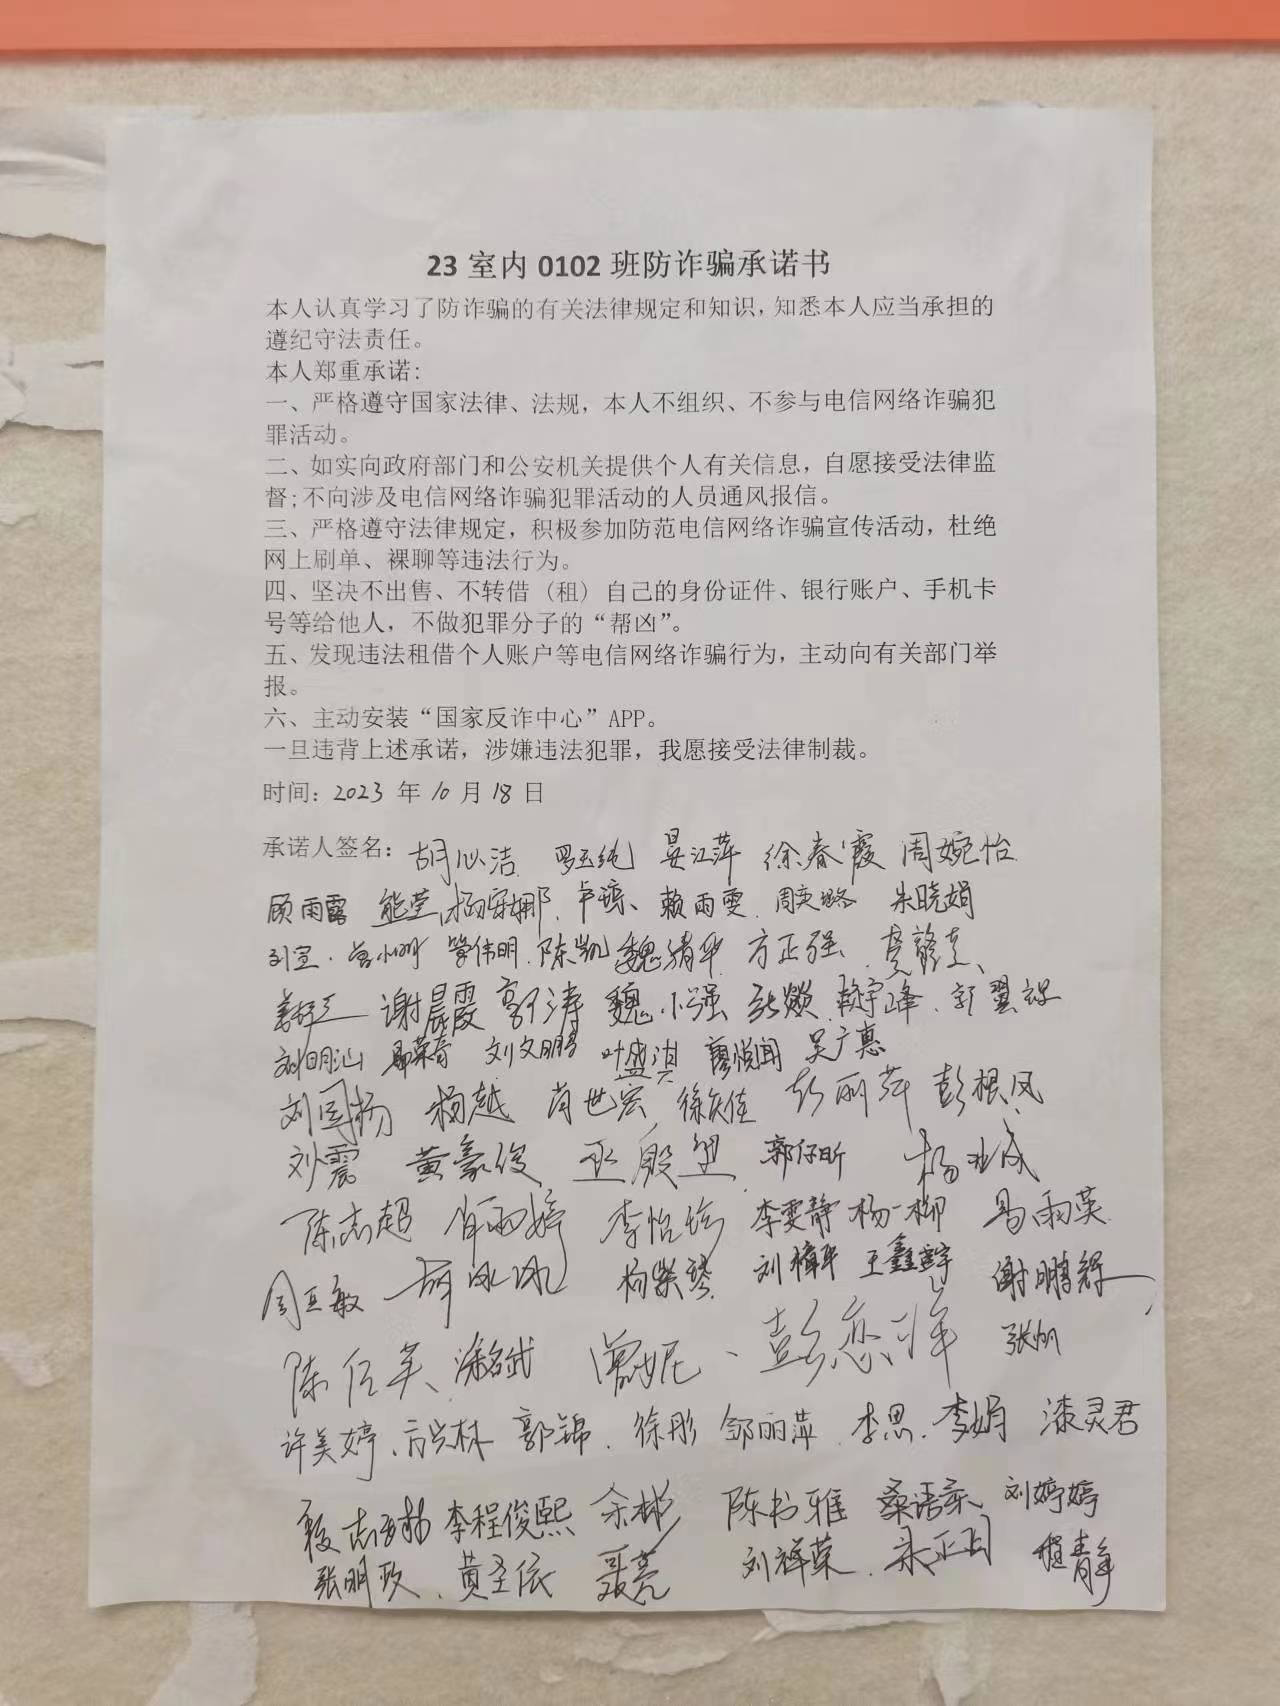 23 室内 0102 班防诈骗承诺书
本人认真学习了防诈骗的有关法律规定和知识，知悉本人应当承担的
遵纪守法责任。
本人郑重承诺：
一、严格遵守国家法律、法规，本人不组织、不参与电信网络诈骗犯
罪活动。
二、如实向政府部门和公安机关提供个人有关信息，自愿接受法律监
督;不向涉及电信网络诈骗犯罪活动的人员通风报信。
三、严格遵守法律规定，积极参加防范电信网络诈骗宣传活动，杜绝
网上刷单、裸聊等违法行为。
四、坚决不出售、不转借（租）自己的身份证件、银行账户、手机卡
号等给他人，不做犯罪分子的“帮凶”。
五、发现违法租借个人账户等电信网络诈骗行为，主动向有关部门举
报。
六、主动安装“国家反诈中心”APP。
一旦违背上述承诺，涉嫌违法犯罪，我愿接受法律制裁。
时间：2023 年 10 月 18 日
承诺人签名：胡心洁 晏江萍 徐春霞 周婉怡
顾雨露 熊莹 卢琼 赖雨雯 朱晓娟
刘宣 管伟明 陈凯 魏绮华 方正强
谢晨霞 郭涛 魏小强 张燚 赖宇峰 郭翼禄
刘明汕 聂荣春 刘文鹏 叶盛淇 廖悦闻 吴广惠
杨越 肖世宏 彭丽萍 彭根凤
刘震 黄豪俊 巫殷 郭仔昕
陈志超 肖雨婷 李怡珍 李雯静 杨一柳 马雨英
周巨敏 胡冰冰 杨紫琴 刘樟平 王鑫宇 谢鹏辉
陈后英 涂名武 曾妮 彭恋洋 张帆
许美婷 方兴林 郭锦 徐彤 邹丽萍 李思 李娟 漆灵君
李程俊熙 余彬 陈书雅 桑语柔 刘婷婷
张明政 黄圣依 聂亮 刘祥荣 程青年